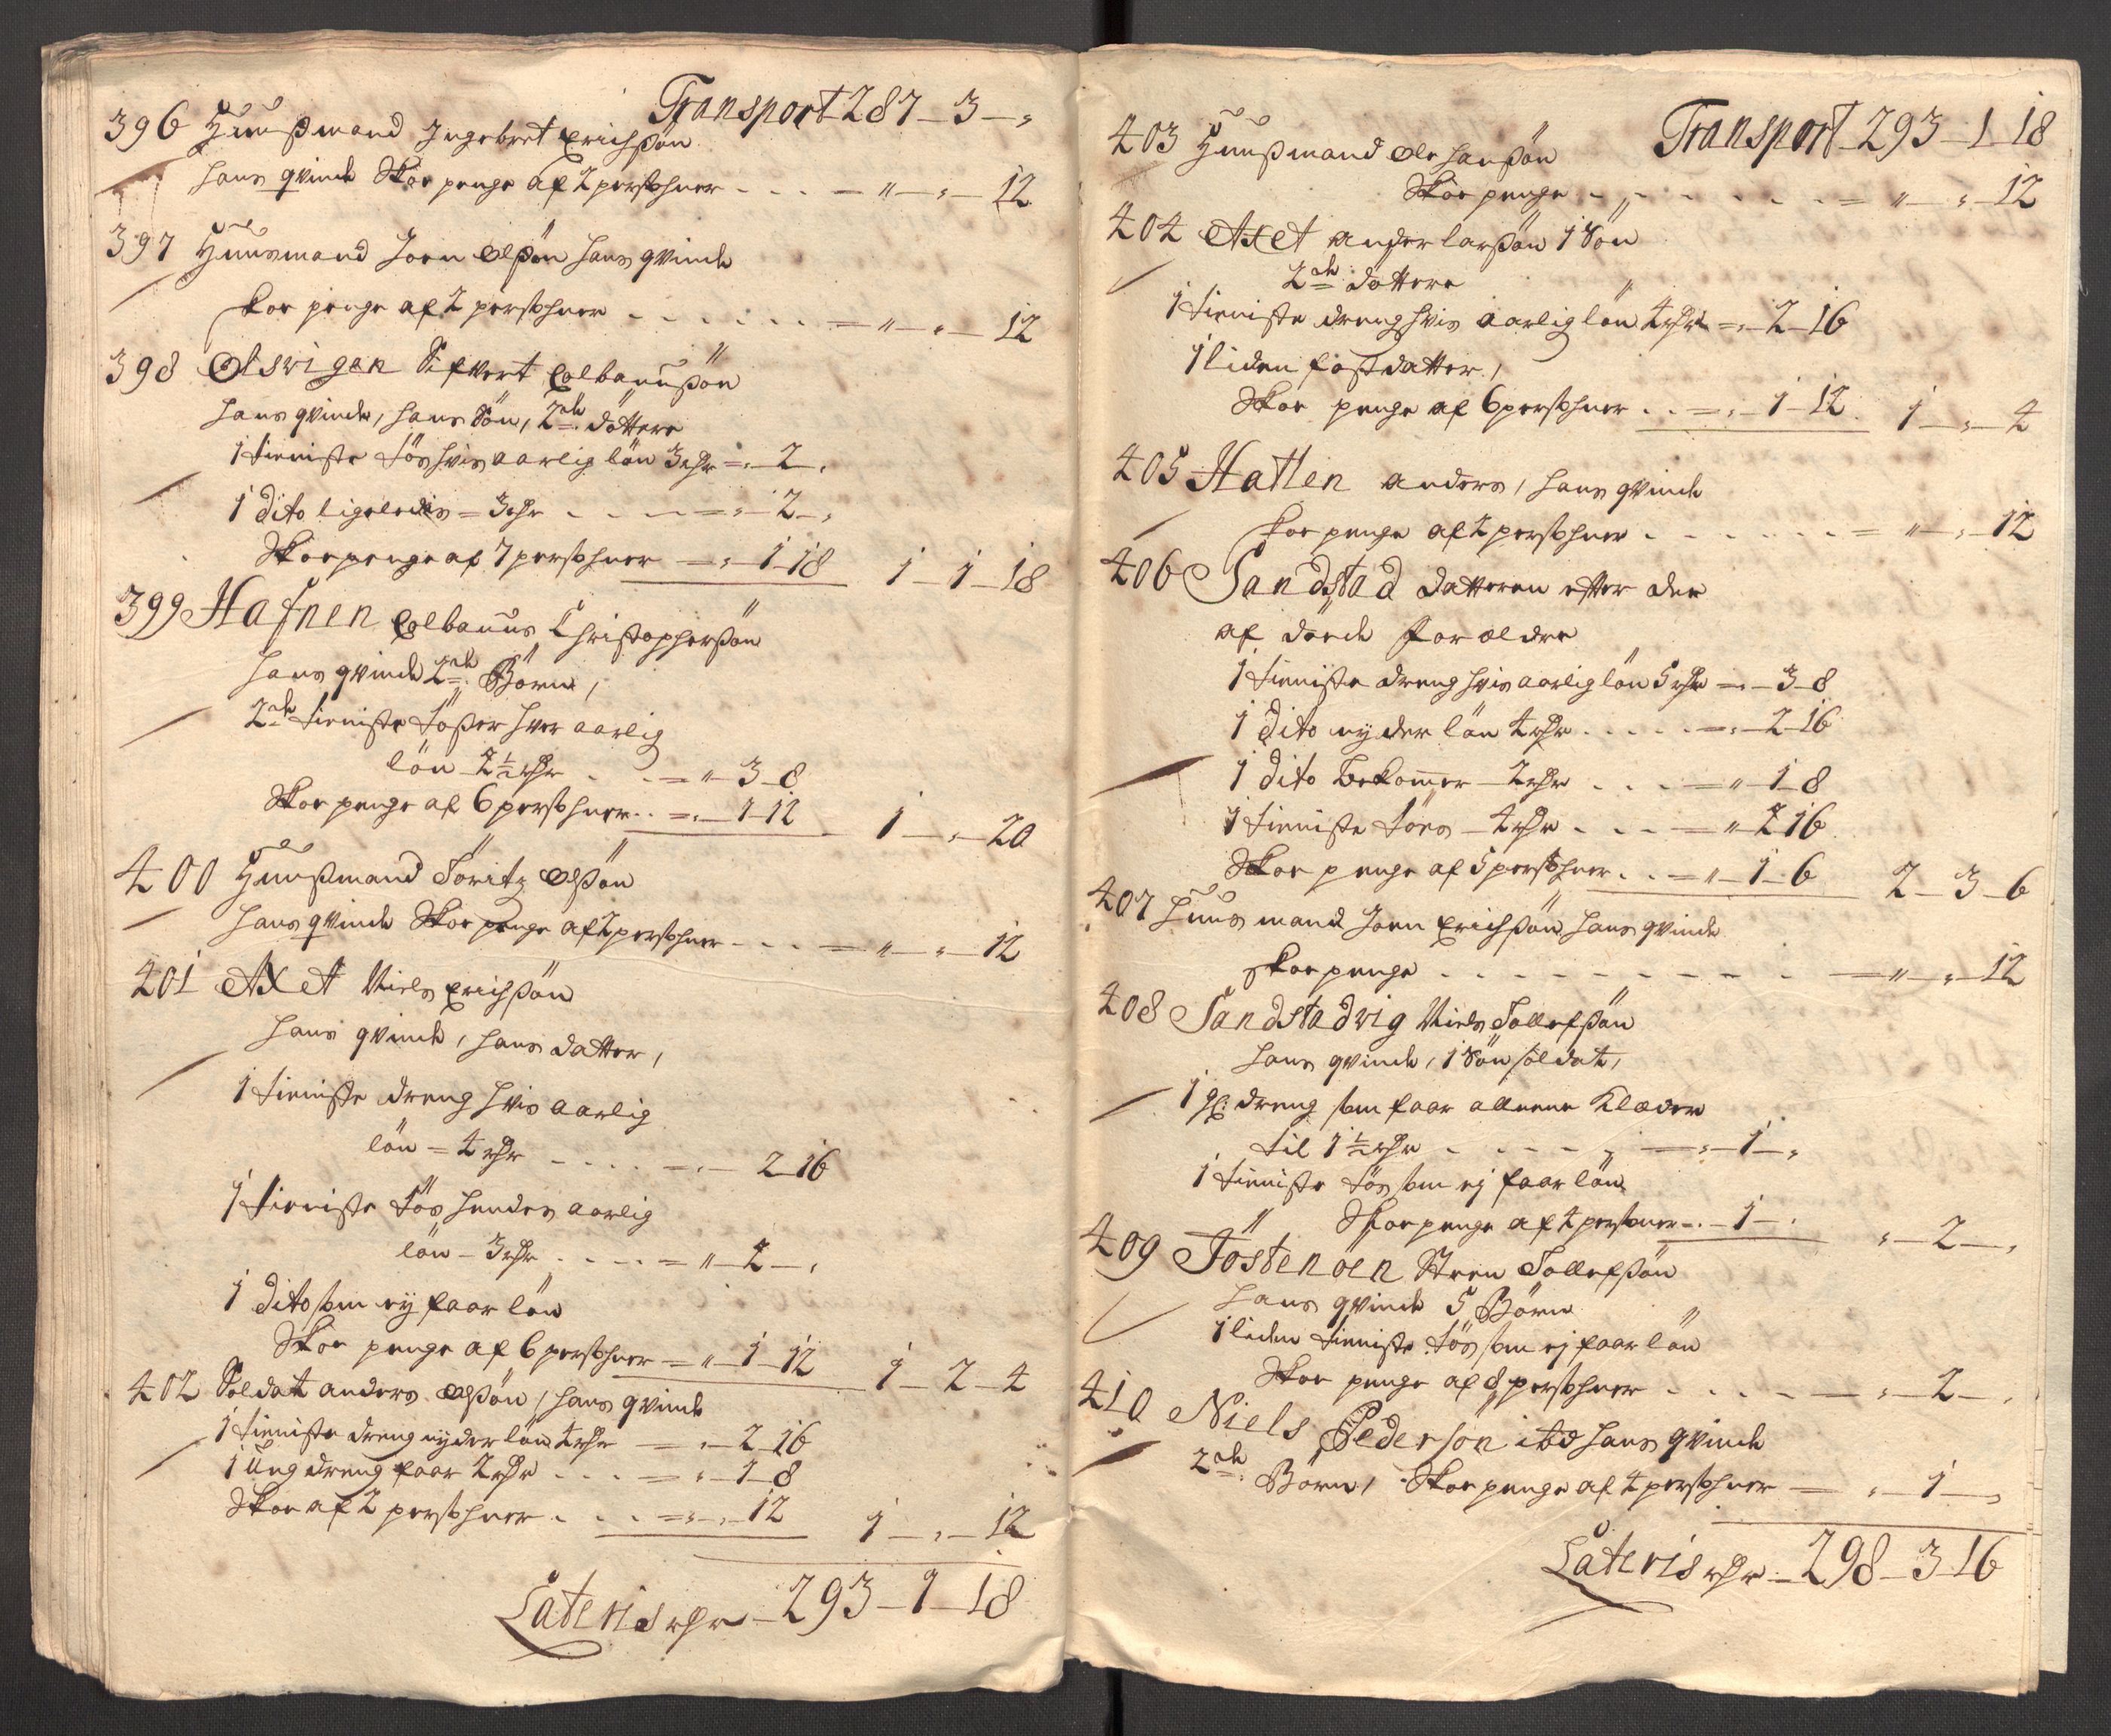 Transport 287 – 3 – „
396 Huusmand Ingebret Erichsøn
hans qvinde Skoe penge af 2 persohner - - - „ – „ – 12
397 Huusmand Joen Olsøn hans qvinde
skoe penge af 2 persohner - - - „ – „ – 12
398 Olsvigen Sifvert Colbanusøn
hans qvinde, hans Søn, 2de døttere
1 tieniste tøs hvis aarlig løn 3 rdr = „ – 2 – „
1 dito ligeledis – 3 rdr - - - = „ – 2 – „
Skoe penge af 7 persohner – „ – 1 – 18 1 – 1 – 18
399 Hafnen Colbanus Christophersøn
hans qvinde 2de Børn,
2de tieniste tøser hver aarlig
løn 2½ rdr - - = „ – 3 – 8
Skoe penge af 6 persohner = „ – 1 – 12 1 – „ – 20
400 Huusmand Søritz Olsøn
hans qvinde Skoe penge af 2 persohner - - - „ – „ – 12
401 AxEt Niels Erichsøn
hans qvinde, hans datter,
1 tieniste dreng hvis aarlig
løn – 4 rdr - - - = „ – 2 – 16
1 tieniste tøs hendes aarlig
løn – 3 rdr - - - = „ – 2 – „
1 dito som ey faar løn
Skoe penge af 6 persohner = „ – 1 – 12 1 – 2 – 4
402 Soldat anders Olsøn, hans qvinde
1 tieniste dreng nyder løn 4 rdr – „ – 2 – 16
1 ung dreng faar 2 rdr - - - = „ – 1 – 8
Skoe af 2 persohner - - - = „ – „ – 12 1 – „ – 12
Lateris rdr – 293 – 1 – 18
Transport – 293 – 1 – 18
403 Huusmand Ole hansøn
Skoe penge - - - = „ – „ – 12
404 AxEt anders larsøn 1 Søn
2de døttere
1 tieniste dreng hvis aarlig løn 4 rdr = „ – 2 – 16
1 liden fosterdatter,
Skoe penge af 6 persohner - - = „ – 1 – 12 1 – „ – 4
405 Hatlen anders, hans qvinde
skoe penge af 2 persohner - - - = „ – „ – 12
406 Sandstad datteren efter der
af døede forældre
1 tieniste dreng hvis aarlig løn 5 rdr = „ – 3 – 8
1 dito nyder løn 4 rdr - - - = „ – 2 – 16
1 dito bekommer – 2 rdr - - - = „ – 1 – 8
1 tieniste tøes – 4 rdr - - - = „ – 2 – 16
Skoe penge af 5 persohner - - = „ – 1 – 6 2 – 3 – 6
407 huusmand Joen Erichsøn hans qvinde
skoe penge - - - „ – „ – 12
408 Sandstadvig Niels Tollefsøn
hans qvinde, 1 Søn soldat,
1 gl: dreng som faar alleene klæder
til 1½ rdr - - - – „ – 1 – „
1 tieniste tøs som ej faar løn
Skoe penge af 4 persouner – „ – 1 – „ „ – 2 – „
409 Töstenöen Steen Tollefsøn
hans qvinde 5 Børn
1 liden tieniste tøs som ej faar løn
Skoe penge af 8 persohner - - - – „ – 2 – „
410 Niels Pedersøn ibd hans qvinde
2de Børn, Skoe penge af 4 persohner – „ – 1 – „
Lateris rdr – 298 – 3 – 16